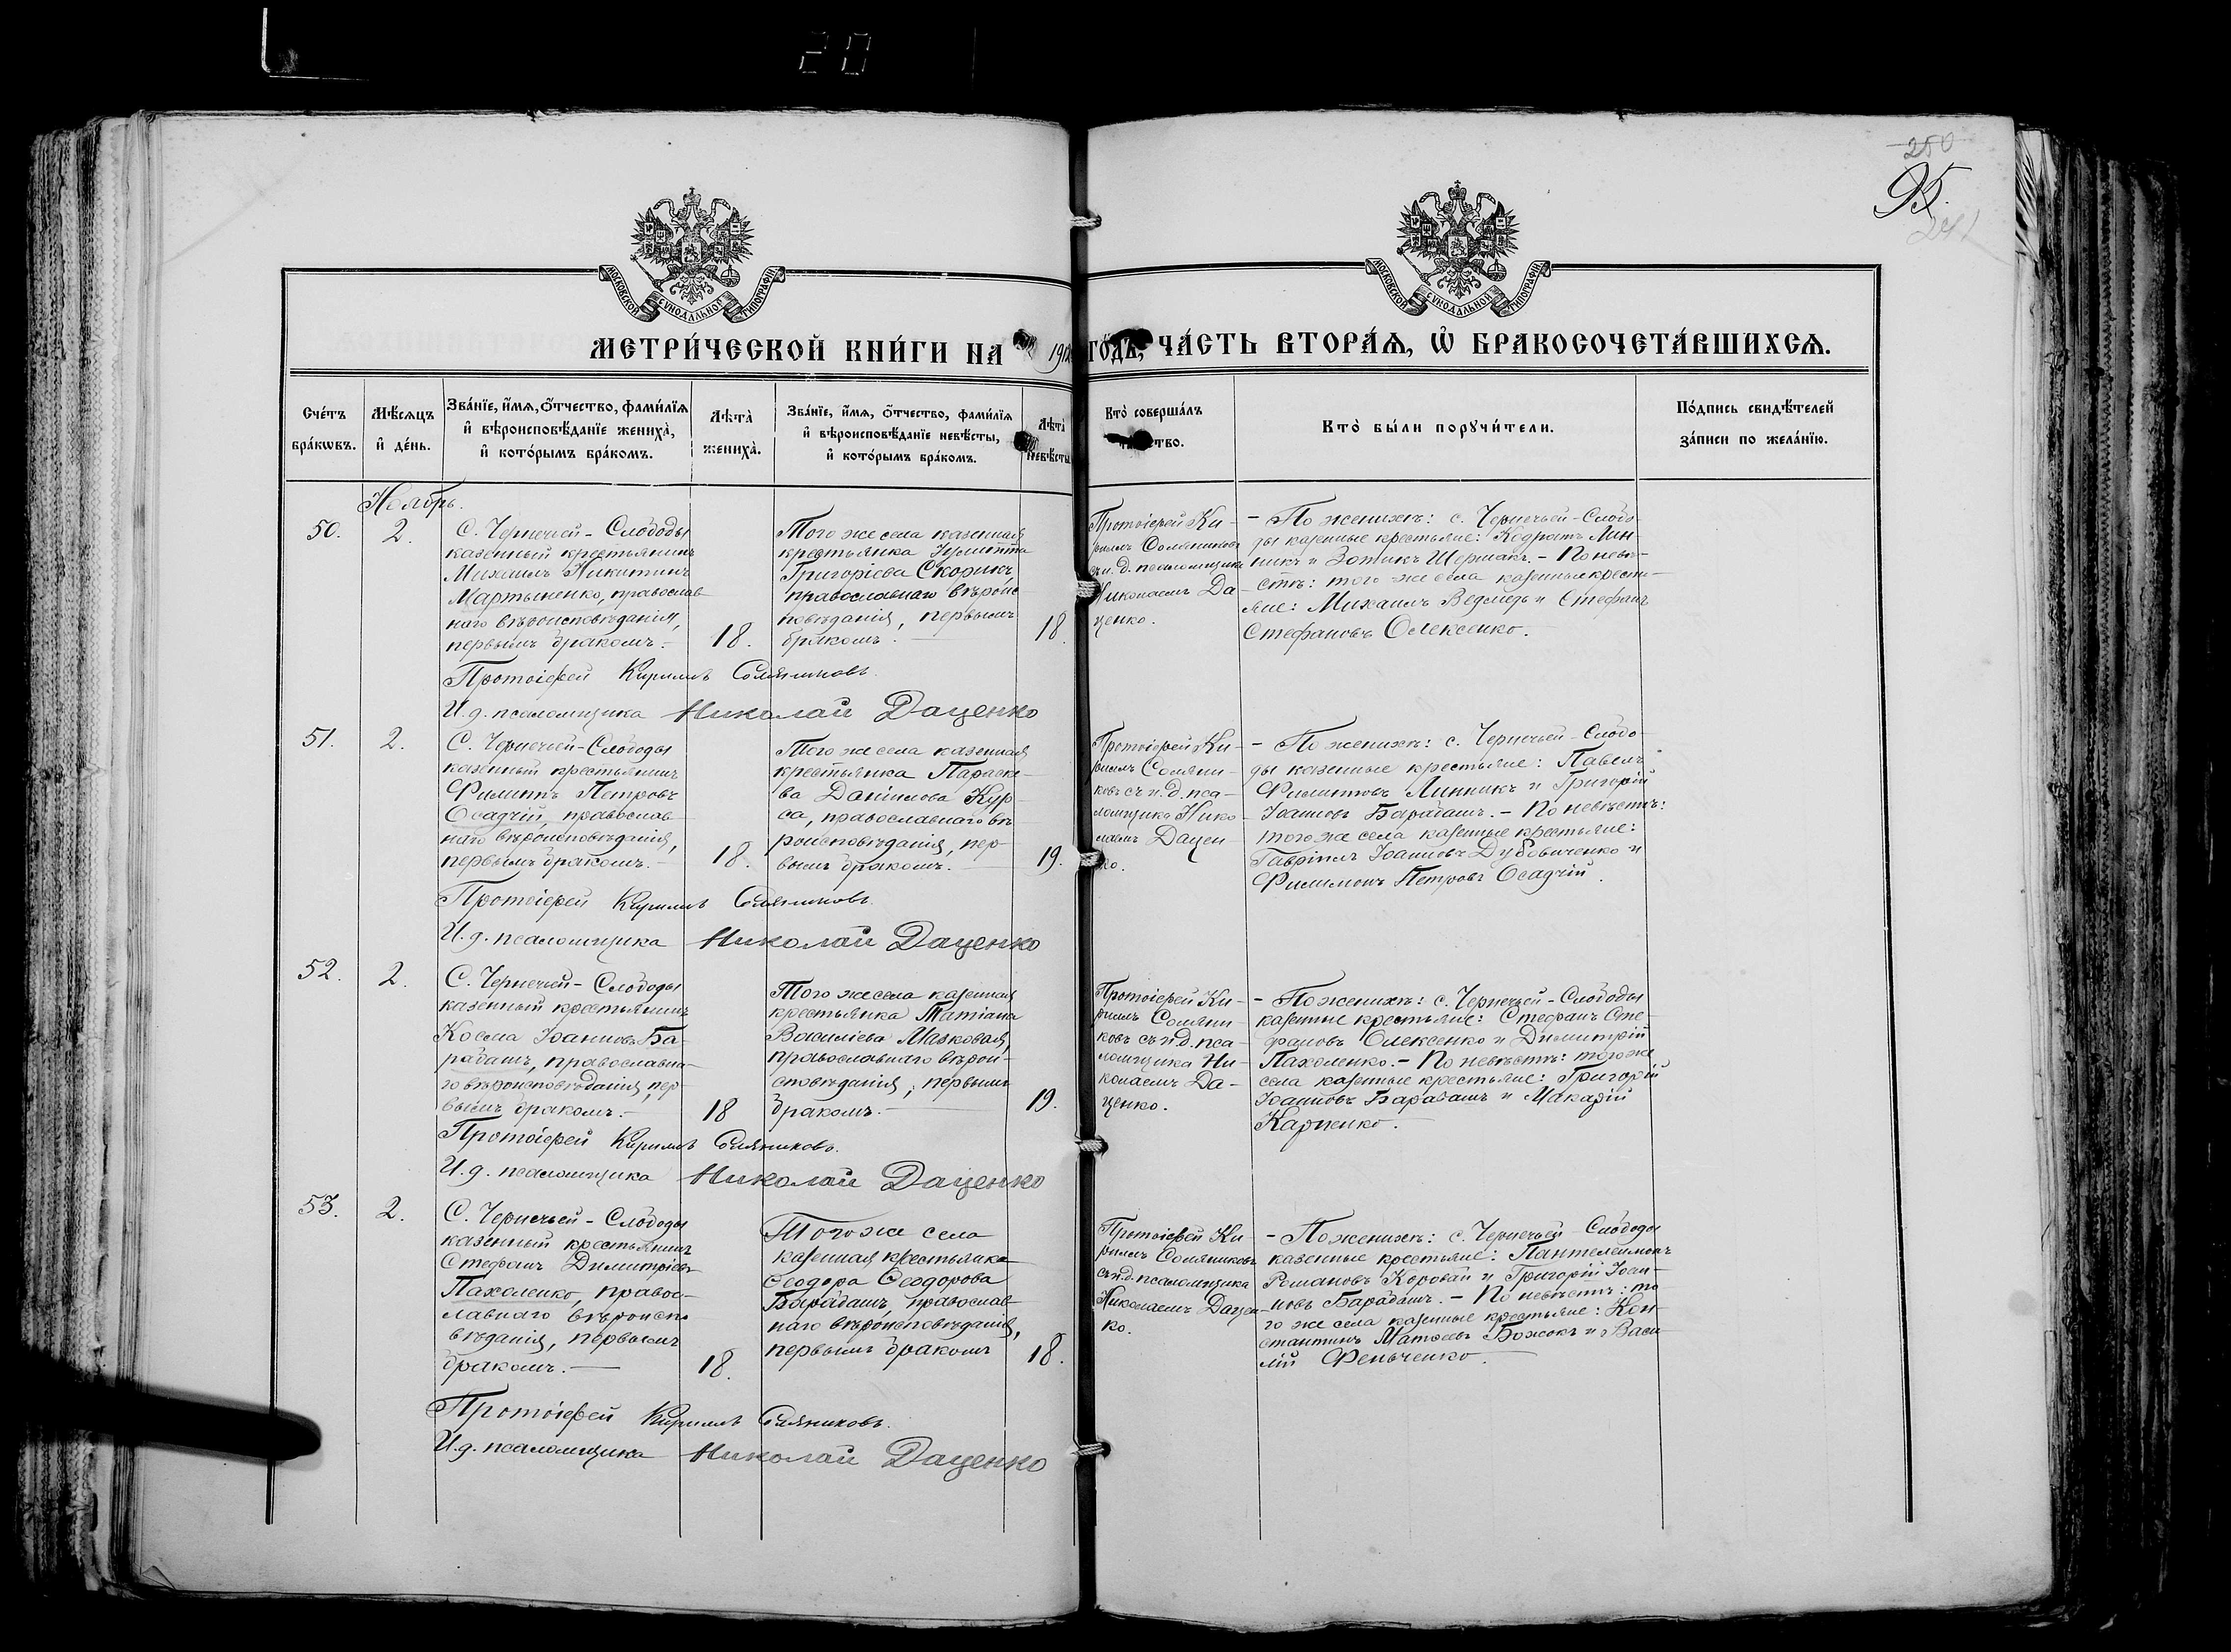 20
250
95.
241
МОСКОВСКОЙ СѴНОДАЛЬНОЙ ТИПОГРАФІИ
МОСКОВСКОЙ СѴНОДАЛЬНОЙ ТИПОГРАФІИ
МЕТРИ́ЧЕСКОЙ КНИ́ГИ НА 1912 ГО́ДЪ, ЧА́СТЬ ВТОРА́Я, Ѡ҆ БРАКОСОЧЕТА́ВШИХСѦ.
Сче́тъ
бра́кѡвъ.
Мѣ́сяцъ
и҆ де́нь.
Зва́нїе, и҆́мѧ, ѻ҆́тчество, фами́лїѧ
и҆ вѣроисповѣ́данїе жениха̀,
и҆ кото́рымъ бра́комъ.
Лѣта̀
жениха̀.
Зва́нїе, и҆́мѧ, ѻ҆́тчество, фами́лїѧ
и҆ вѣроисповѣ́данїе невѣ́сты,
и҆ кото́рымъ бра́комъ.
Лѣта̀
невѣ́сты
Кто̀ соверша́лъ
Кто̀ бы́ли порꙋчи́тели.
По́дпись свидѣ́телей
за́писи по жела́нїю.
Ноябрь.
50.
2.
С. Чернечьей-Слободы
казенный крестьянинъ
Михаилъ Никитинъ
Мартыненко, православ
наго вѣроисповѣданія,
первымъ бракомъ.-
18.
Того же села казенная
крестьянка
Григоріева Скорикъ,
православнаго вѣроис
повѣданія, первымъ
бракомъ.
18.
Протоіерей Ки-
риллъ Соляниковъ
съ и.д. псаломщика
Николаемъ Да-
ценко.
- По женихѣ: с. Чернечьей-Слобо-
ды казенные крестьяне: Кодратъ Лин-
никъ и Зотикъ Шерпакъ. - По невѣ-
стѣ: того же села казенные кресть-
яне: Михаилъ Ведмедь и Стефанъ
Стефановъ Олексенко.
Протоіерей Кириллъ Соляниковъ.
И.д. псаломщика Николай Даценко
51.
2.
С. Чернечьей-Слободы
казенный крестьянинъ
Филиппъ Петровъ
Осадчій, православ
наго вѣроисповѣданія,
первымъ бракомъ.-
18.
Того же села казенная
крестьянка Параске-
ва Даніилова Кур-
са, православнаго вѣ
роисповѣданія, пер-
вымъ бракомъ.-
19.
Протоіерей Ки-
риллъ Соляни-
ковъ съ и.д. пса-
ломщика Нико-
лаемъ Дацен
ко.
- По женихѣ: с. Чернечьей-Слобо-
ды казенные крестьяне: Павелъ
Филипповъ Линникъ и Григорій
Іоанновъ Барабашъ. - По невѣстѣ:
того же села казенные крестьяне:
Гавріилъ Іоанновъ Дубовиченко и
Филимонъ Петровъ Осадчій.
Протоіерей Кириллъ Соляниковъ.
И.д. псаломщика Николай Даценко
52.
2.
С. Чернечьей-Слободы
казенный крестьянинъ
Косма Іоанновъ Ба-
рабашъ, православна-
го вѣроисповѣданія, пер-
вымъ бракомъ.-
18
Того же села казенная
крестьянка Татіана
Василіева Мазковая,
православнаго вѣрои-
сповѣданія, первымъ
бракомъ.-
19.
Протоіерей Ки-
риллъ Соляни-
ковъ съ и.д. пса-
ломщика Ни-
колаемъ Да-
ценко.
- По женихѣ: с. Чернечьей-Слободы
казенные крестьяне: Стефанъ Сте-
фановъ Олексенко и Димитрій
Пахоленко. - По невѣстѣ: того же
села казенные крестьяне: Григорій
Іоанновъ Барабашъ и Макарій
Карпенко.
Протоіерей Кириллъ Соляниковъ.
И.д. псаломщика Николай Даценко
53.
2.
С. Чернечьей-Слободы
казенный крестьянинъ
Стефанъ Димитріевъ
Пахоленко, правос-
лавнаго вѣроиспо
вѣданія, первымъ
бракомъ.-
18.
Того же села
казенная крестьянка
Ѳеодора Ѳеодорова
Барабашъ, православ-
наго вѣроисповѣданія,
первымъ бракомъ
18.
Протоіерей Ки-
риллъ Соляниковъ
съ и.д. псаломщика
Николаемъ Дацен-
ко.
- По женихѣ: с. Чернечьей Слободы
казенные крестьяне: Пантелеимонъ
Романовъ Коровай и Григорій Іоан-
новъ Барабашъ. - По невѣстѣ: то
го же села казенные крестьяне: Кон-
стантинъ Матѳеевъ Божокъ и Васи-
лій Феньченко.
Протоіерей Кириллъ Соляниковъ.
И.д. псаломщика Николай Даценко